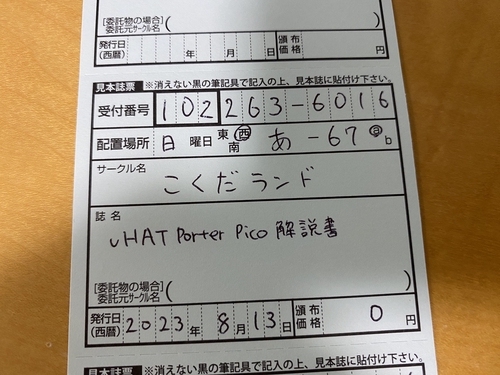 [委託物の場合]
委託元サークル名 (
発行日 (西暦) 年 月 日 頒布価格 円
見本誌票 ※消えない黒の筆記具で記入の上、見本誌に貼付け下さい。
受付番号 102263-6016
配置場所 日 曜日 東 西 南 あ-67 a b
サークル名
こくだランド
誌名
uHAT Porter Pico 解説書
[委託物の場合]
委託元サークル名 (
発行日 (西暦) 2023年 8月13日 頒布価格 0 円
見本誌票 ※消えない黒の筆記具で記入の上、見本誌に貼付け下さい。